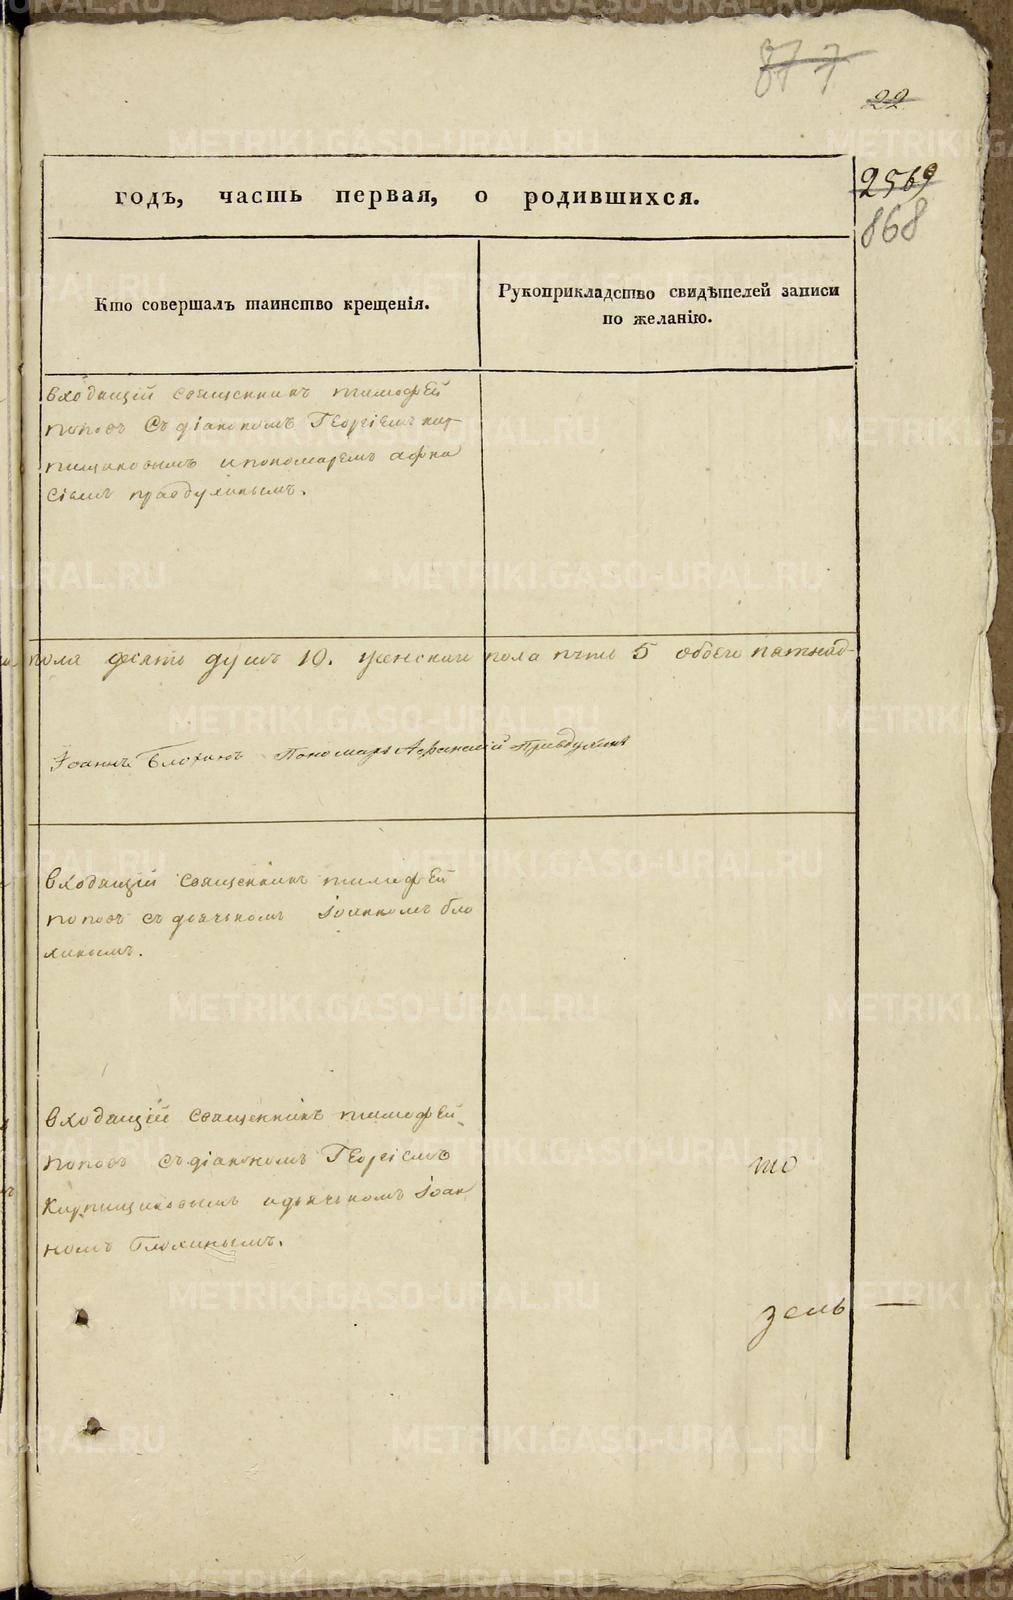 877
22
2569
868
годъ, часть первая, о родившихся.
Кто совершалъ таинство крещенія.
Рукоприкладство свидѣтелей записи
по желанію.
входящій священникъ тимофей
поповъ Съ діакономъ Георгіемъ кир-
пищиковымъ ипономаремъ афна
сіемъ правдухинымъ.
пола десять душъ 10. женскаго пола пять 5 обоего пятнад-
Іоаннъ Блохинъ Пономарь Афанасій Правдухинъ
входящій священникъ тимофей
поповъ съ дьячкомъ Іоанномъ бло
хинымъ.
входящій священникъ тимофей
поповъ съ діакономъ Георгіемъ
Кирпищиковымъ идьячкомъ Іоан
номъ блохинымъ.
то
зель —
METRIKI.GASO-URAL.RU